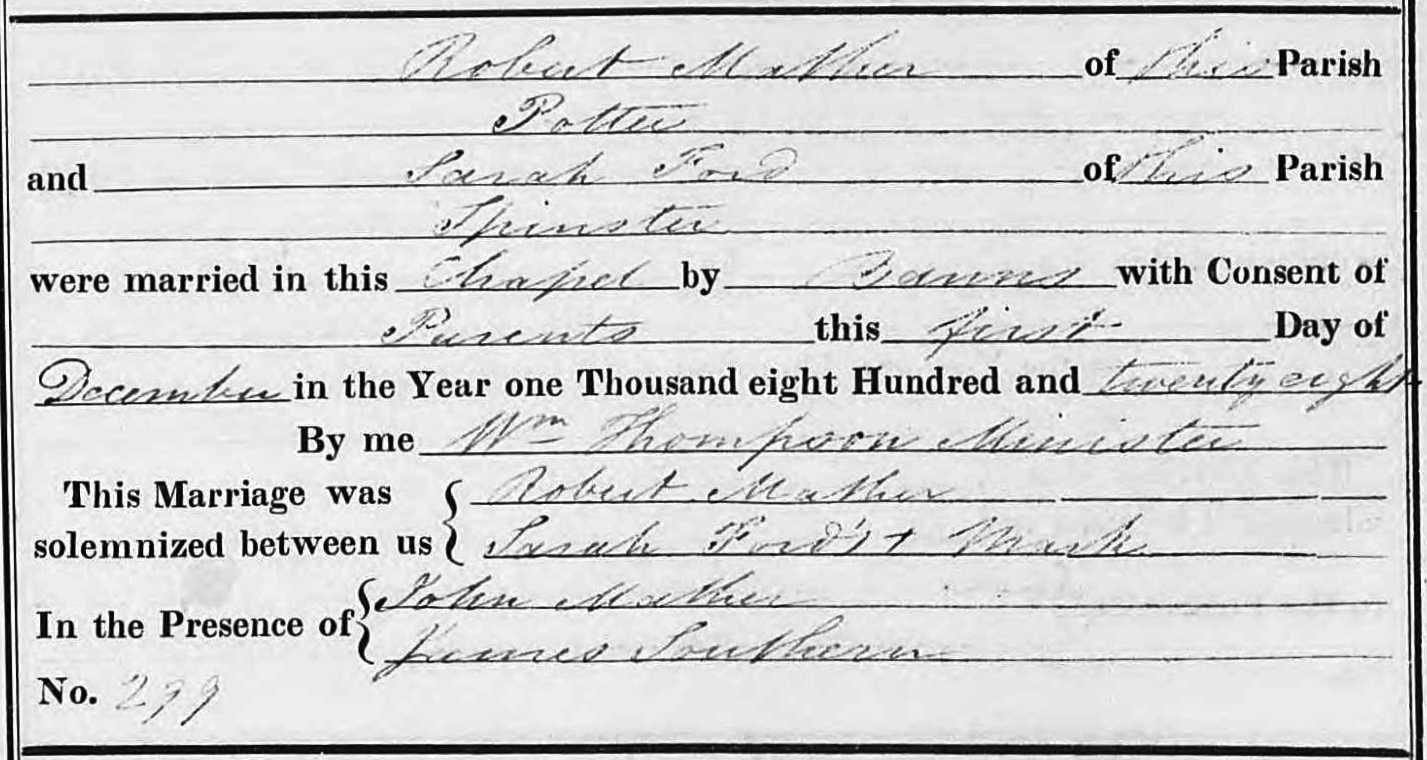 Robert Mather of this Parish
Potter
and Sarah Ford of this Parish
Spinster
were married in this Chapel by Banns with Consent of
Parents this first Day of
December in the Year one Thousand eight Hundred and twenty eight
By me Wm Thompson Minister
This Marriage was { Robert Mather
solemnized between us { Sarah Ford's + Mark
In the Presence of { John Mather
James Southern
No. 299